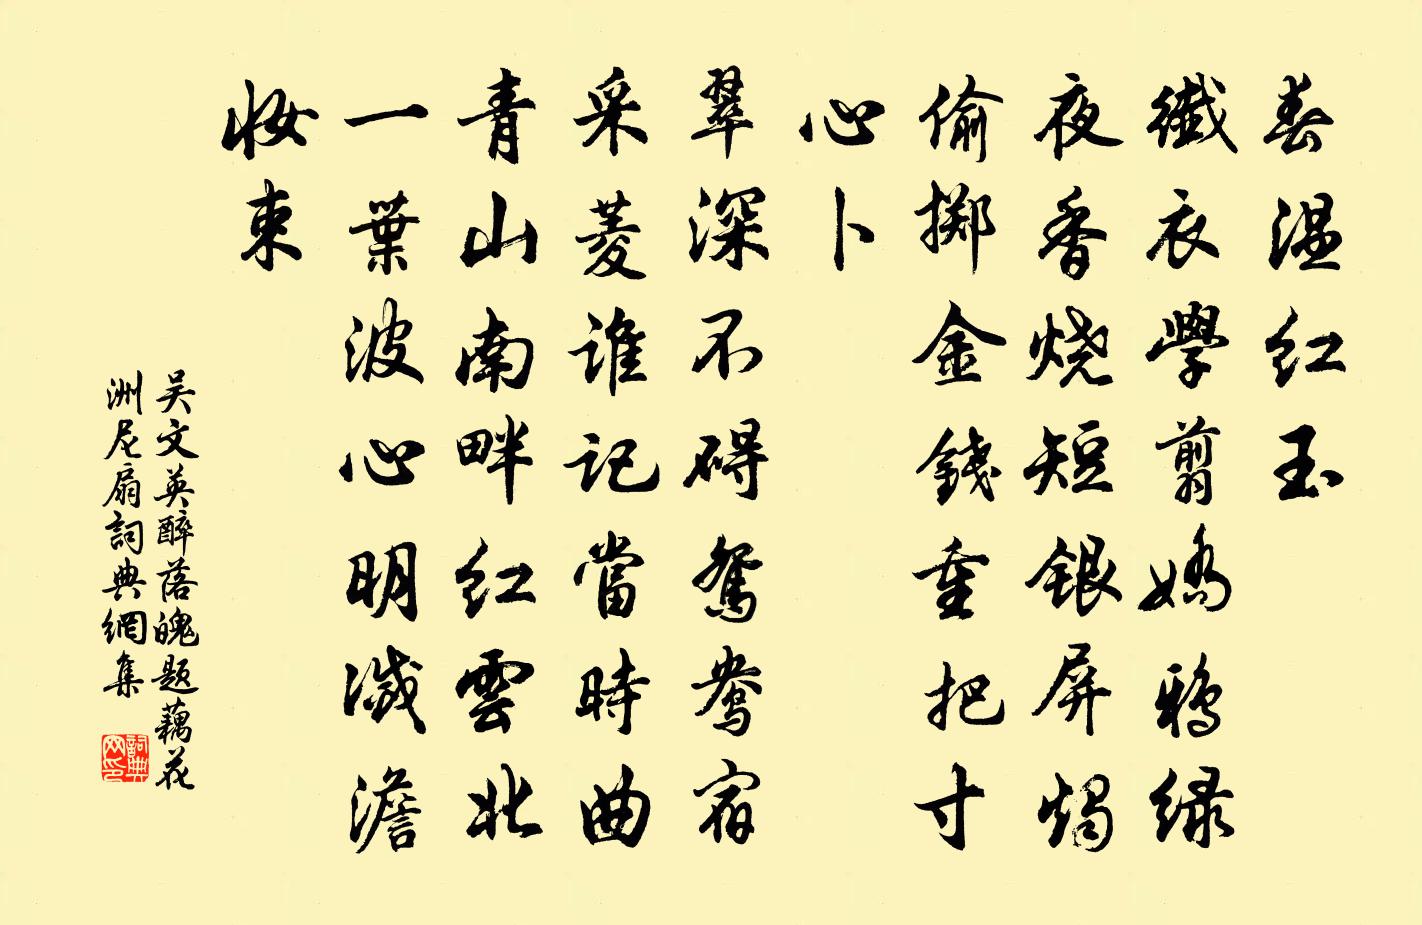 春温红玉
纖衣學翦嬌鴉绿
夜香烧短銀屏燭
偷掷金錢重把寸
心卜
翠深不碍鴛鴦宿
采菱谁记當時曲
青山南畔红雲北
一葉波心明滅澹
妝束
吴文英醉落魄题藕花
洲尼扇詞典網集
詞典
网印